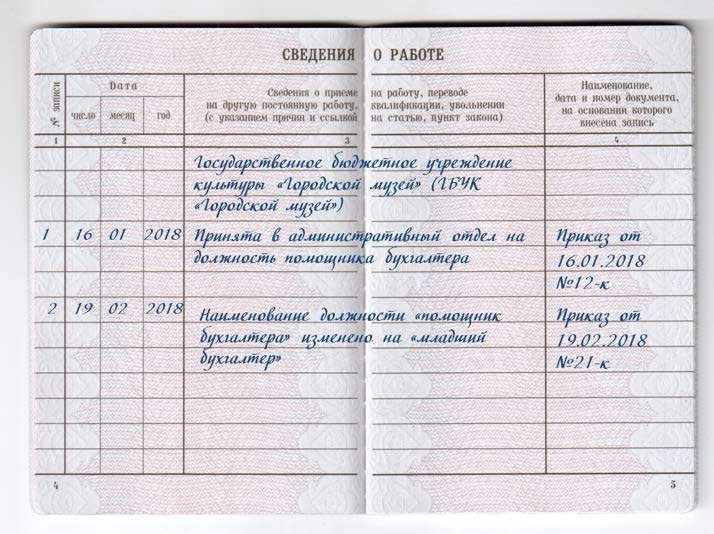 СВЕДЕНИЯ О РАБОТЕ
№ записи
Дата
число
месяц
год
Сведения о приеме на работу, переводе
на другую постоянную работу, квалификации, увольнении
(с указанием причин и ссылкой на статью, пункт закона)
Наименование,
дата и номер документа,
на основании которого
внесена запись
1 2 3 4
Государственное бюджетное учреждение
культуры «Городской музей» (ГБУК
«Городской музей»)
1 16 01 2018 Принята в административный отдел на Приказ от
должность помощника бухгалтера 16.01.2018
№12-к
2 19 02 2018 Наименование должности «помощник Приказ от
бухгалтера» изменено на «младший 19.02.2018
бухгалтер» №21-к
4 5